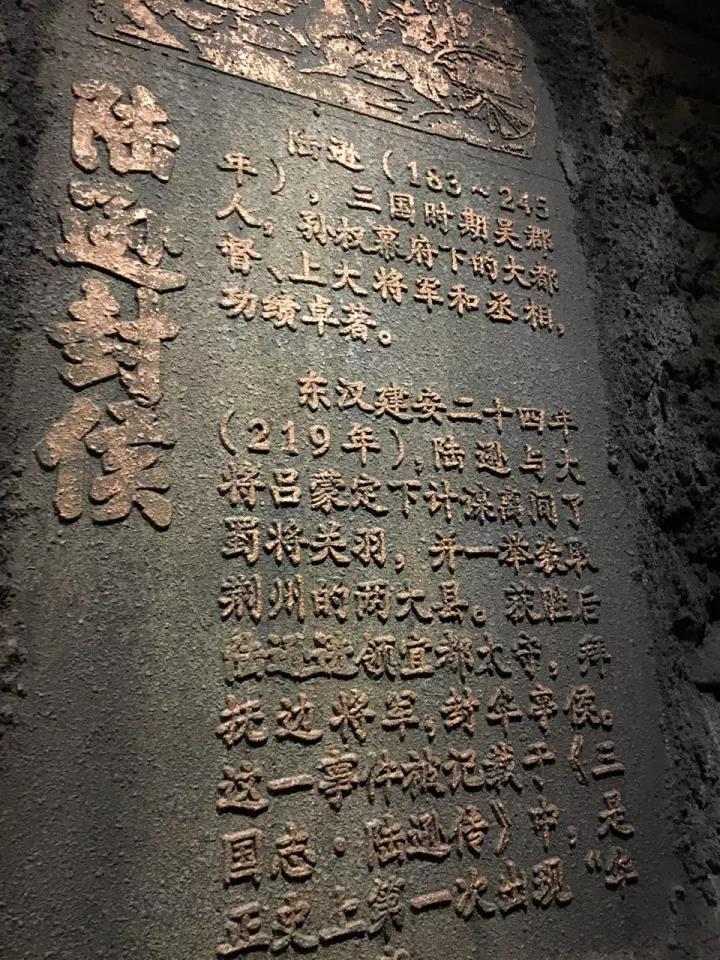 陆逊封侯
陆逊（183～245
年），三国时期吴郡
人。孙权幕府下的大都
督、上大将军和丞相，
功绩卓著。
东汉建安二十四年
（219年），陆逊与大
将吕蒙定下计谋离间了
蜀将关羽，并一举袭取
荆州的两大县。获胜后
陆逊领宜都太守，拜
抚边将军，封华亭侯。
这一事件被记载于《三
国志·陆逊传》中，是
正史上第一次出现“华